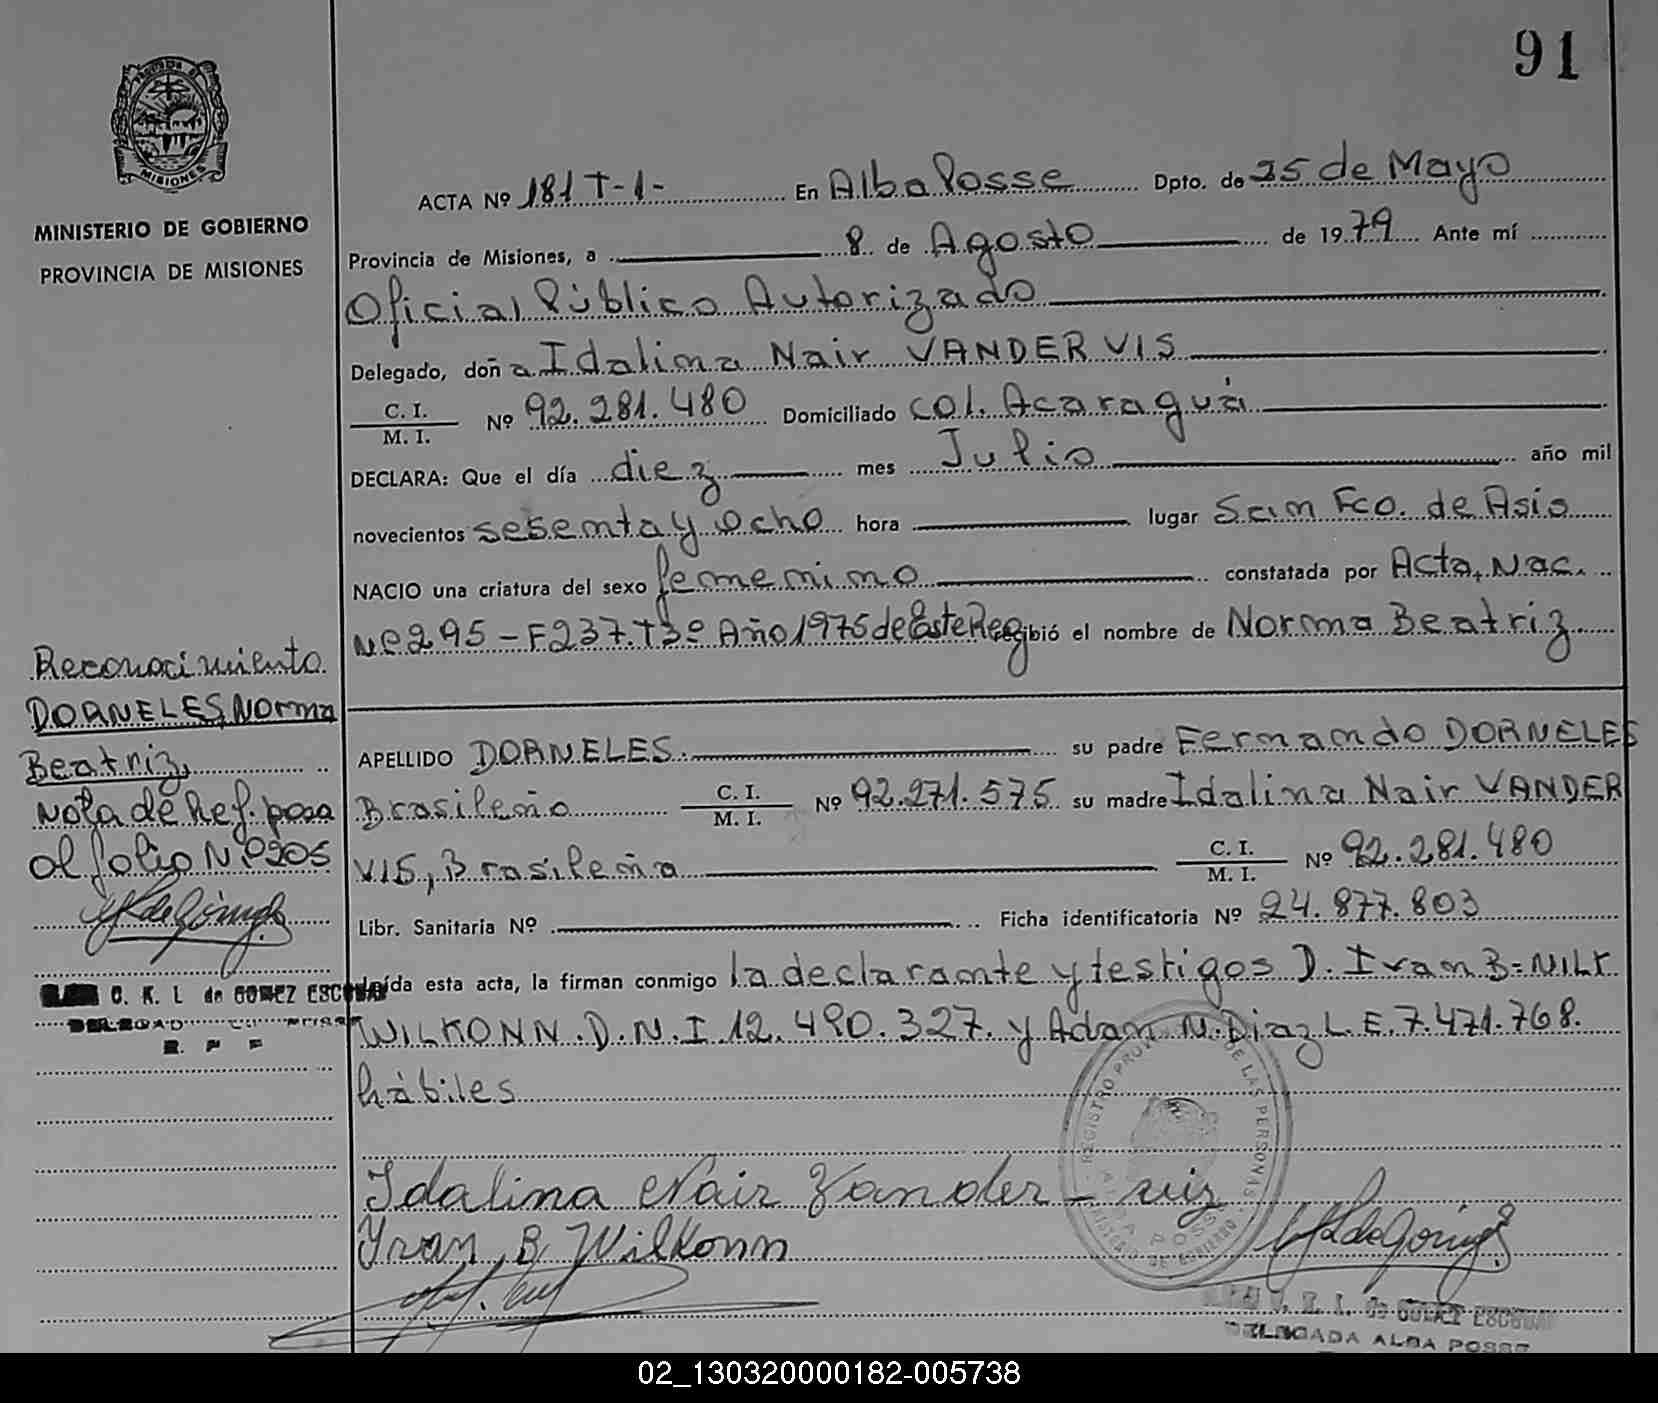 91
PROVINCIA DE
MISIONES
MINISTERIO DE GOBIERNO
PROVINCIA DE MISIONES
ACTA Nº 181 T-1- En Alba Posse Dpto. de 25 de Mayo
Provincia de Misiones, a 8 de Agosto de 1979 Ante mí
Oficial Público Autorizado
Delegado, doña Idalina Nair VANDER VIS
C. I.
M. I. Nº 92.281.480 Domiciliado Col. Acaraguá
DECLARA: Que el día diez mes Julio año mil
novecientos sesenta y ocho hora lugar San Fco. de Asis
NACIO una criatura del sexo femenino constatada por Acta, Nac.
Nº 295 - F237. T3º Año 1975 de Este Reg recibió el nombre de Norma Beatriz
APELLIDO DORNELES. su padre Fernando DORNELES
Brasileño C. I.
M. I. Nº 92.271.575 su madre Idalina Nair VANDER
VIS, Brasileña C. I.
M. I. Nº 92.281.480
Libr. Sanitaria Nº Ficha identificatoria Nº 24.877.803
Leída esta acta, la firman conmigo la declarante y testigos D. Ivan B= NILT
WILKONN. D.N.I 12.490.327. y Adan N. Diaz L.E. 7.471.768.
hábiles
Idalina Nair Vander - viz
Ivan B. Wilkonn
Reconocimiento
DORNELES, Norma
Beatriz,
Nota de Ref. pasa
al folio Nº 205
C. K. L de GOMEZ ESCOBAR
REGISTRO DE LAS PERSONAS
ALBA POSSE
DE GOBIERNO
de GOMEZ ESCOBAR
DELEGADA ALBA POSSE
02_130320000182-005738